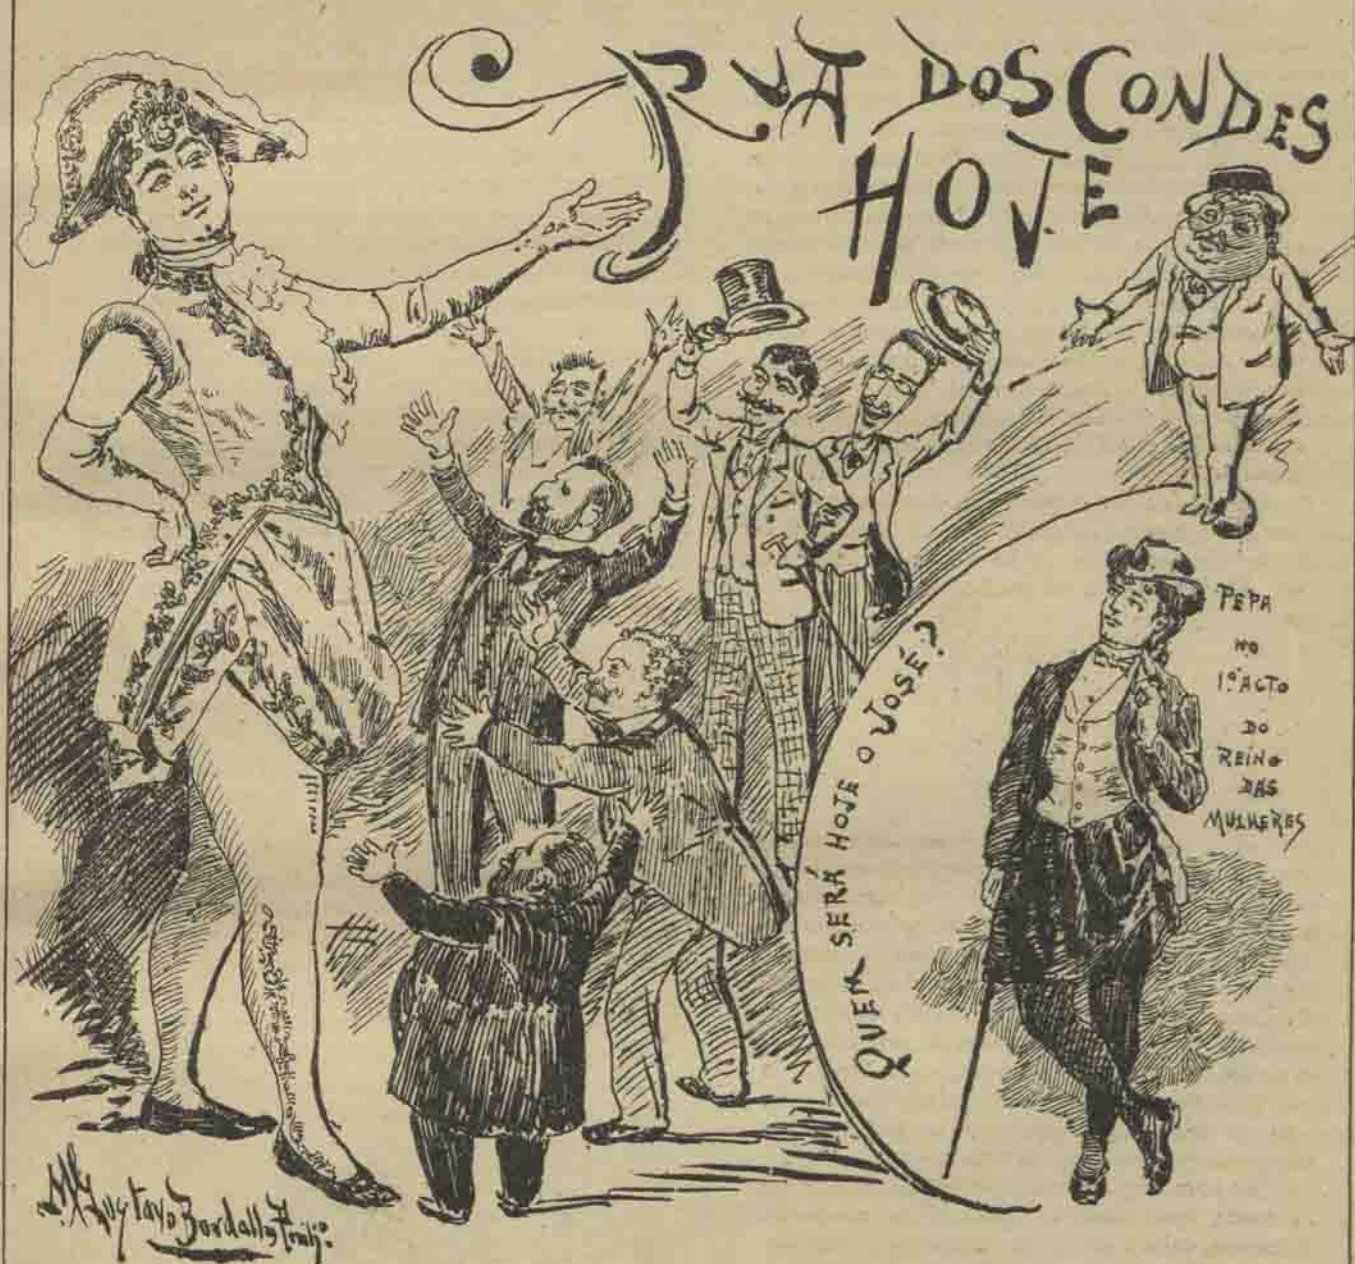 RUA DOS CONDES
HOJE
QUEM SERÁ HOJE O JOSÉ?
PEPA
NO
1º ACTO
DO
REINO
DAS
MULHERES
M. Gustavo Bordallo Pinhº.